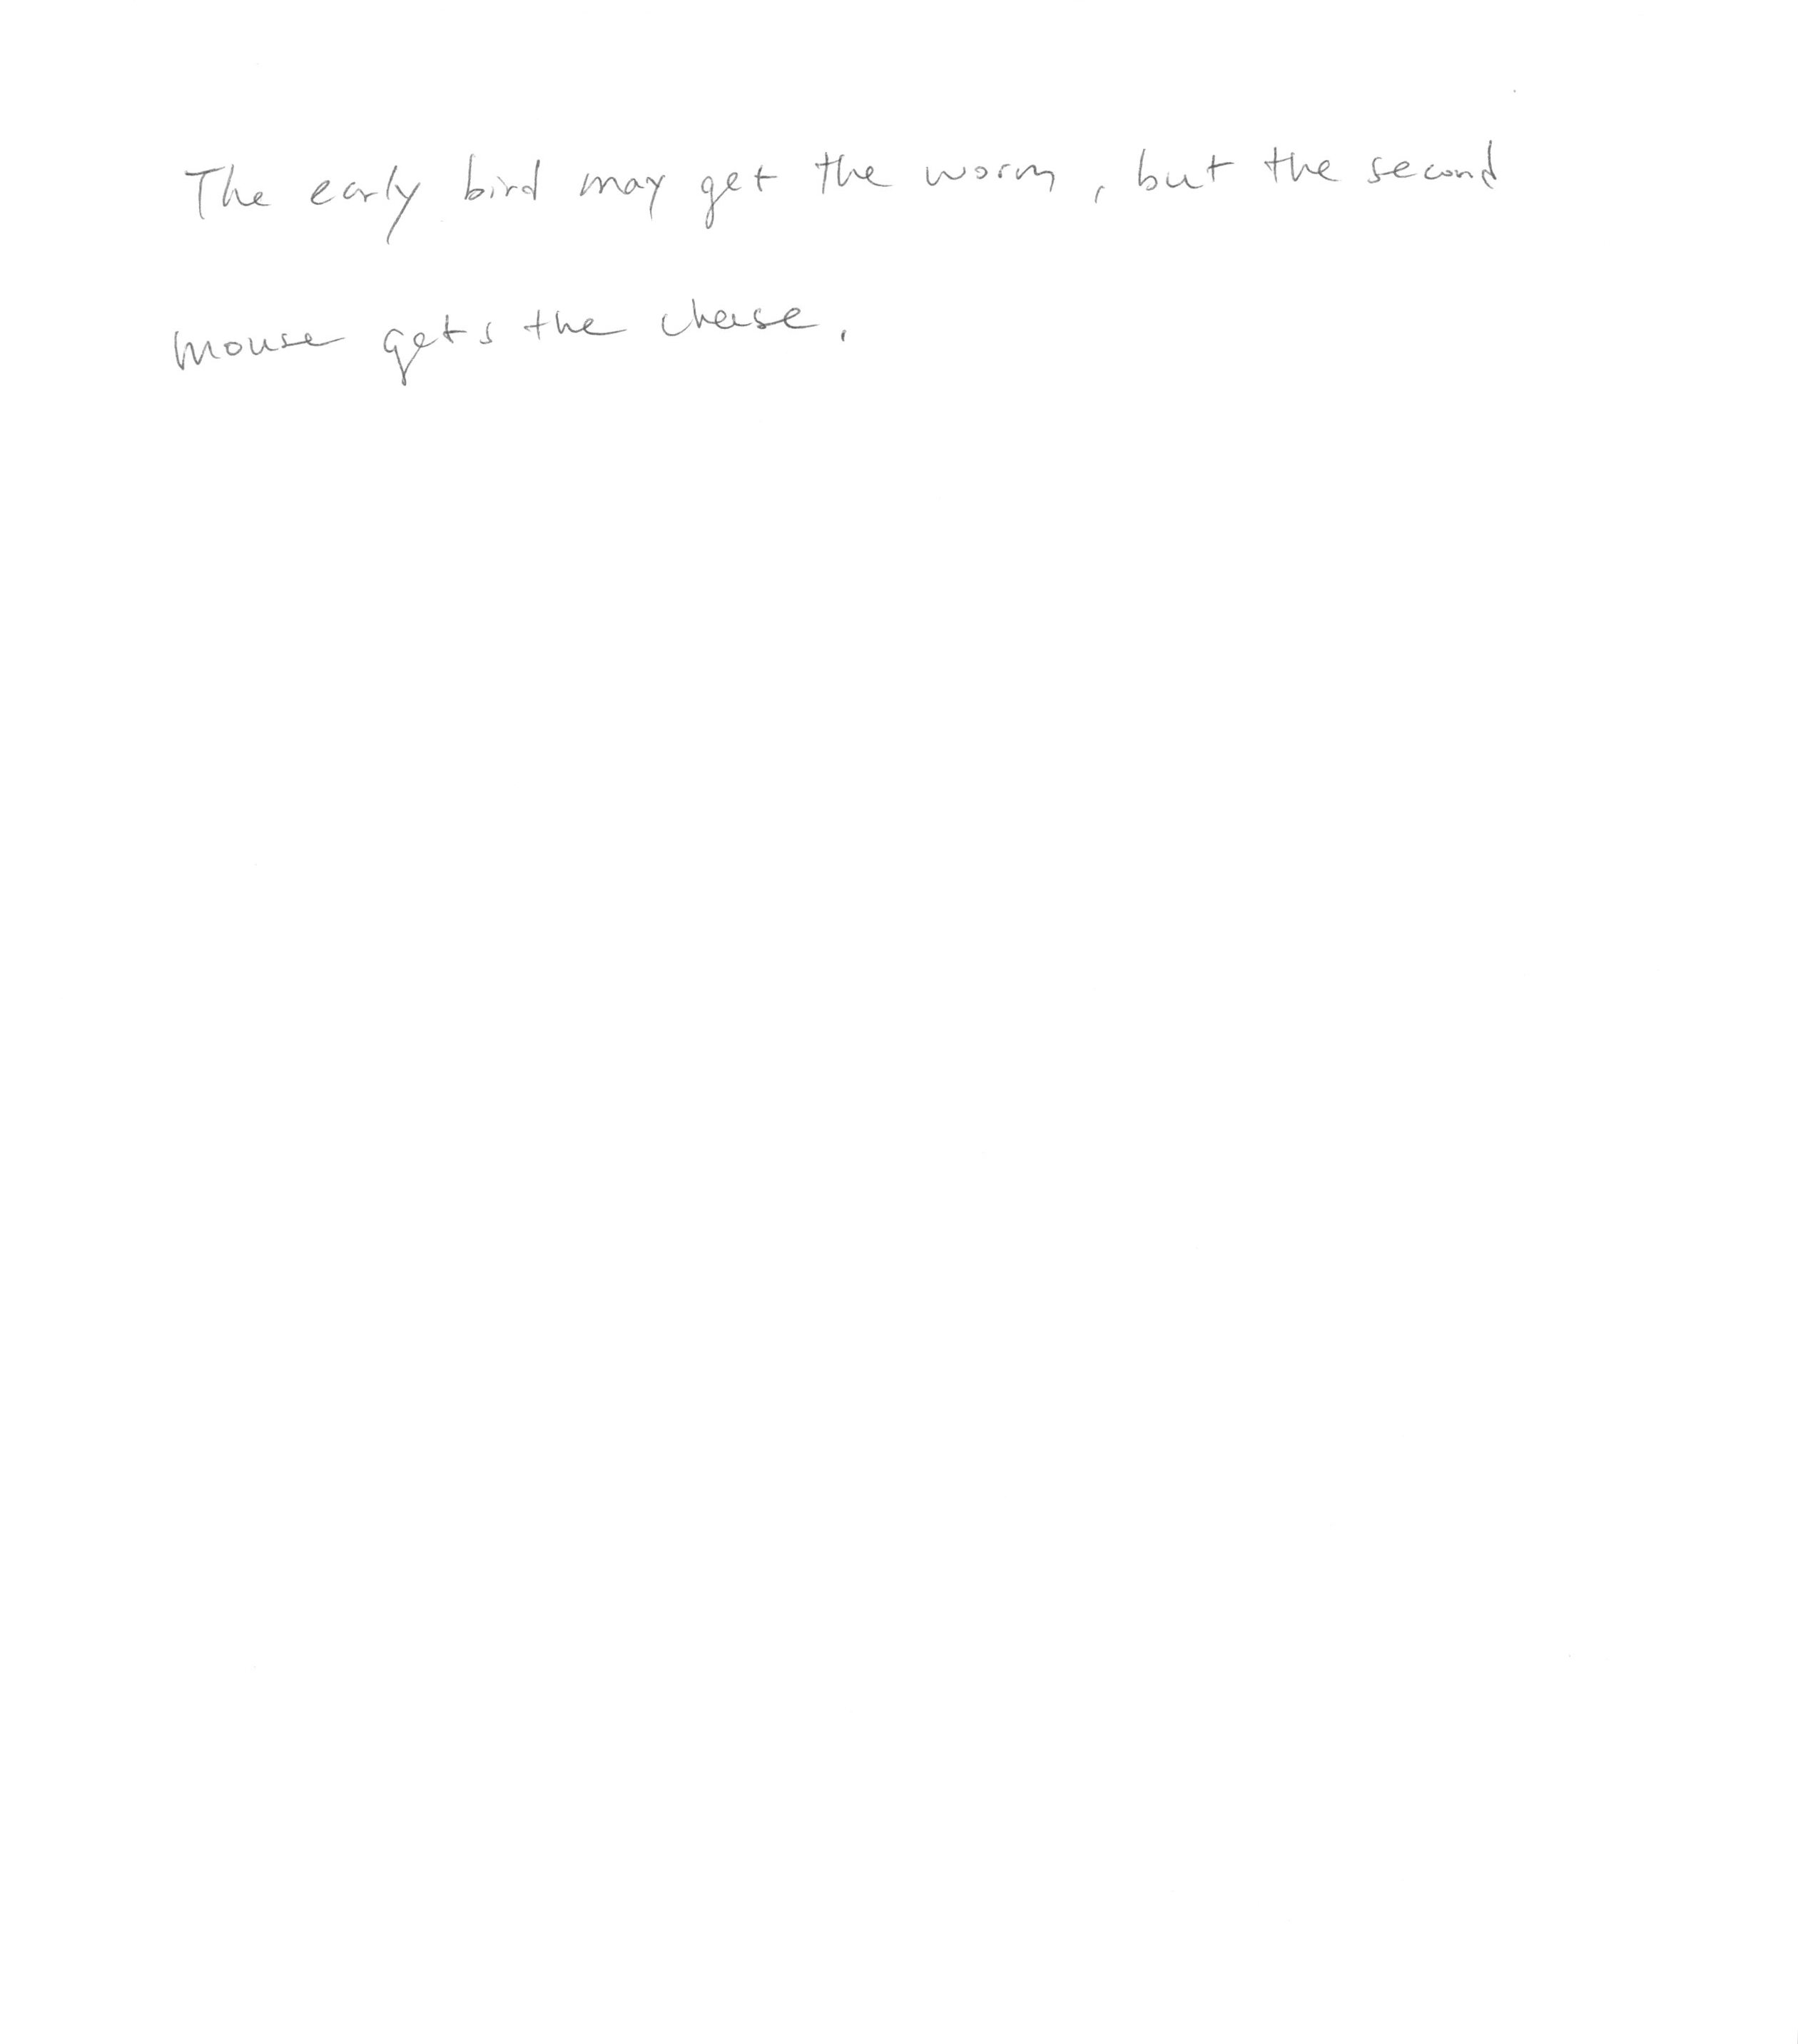 The early bird may get the worm, but the second
mouse gets the cheese.